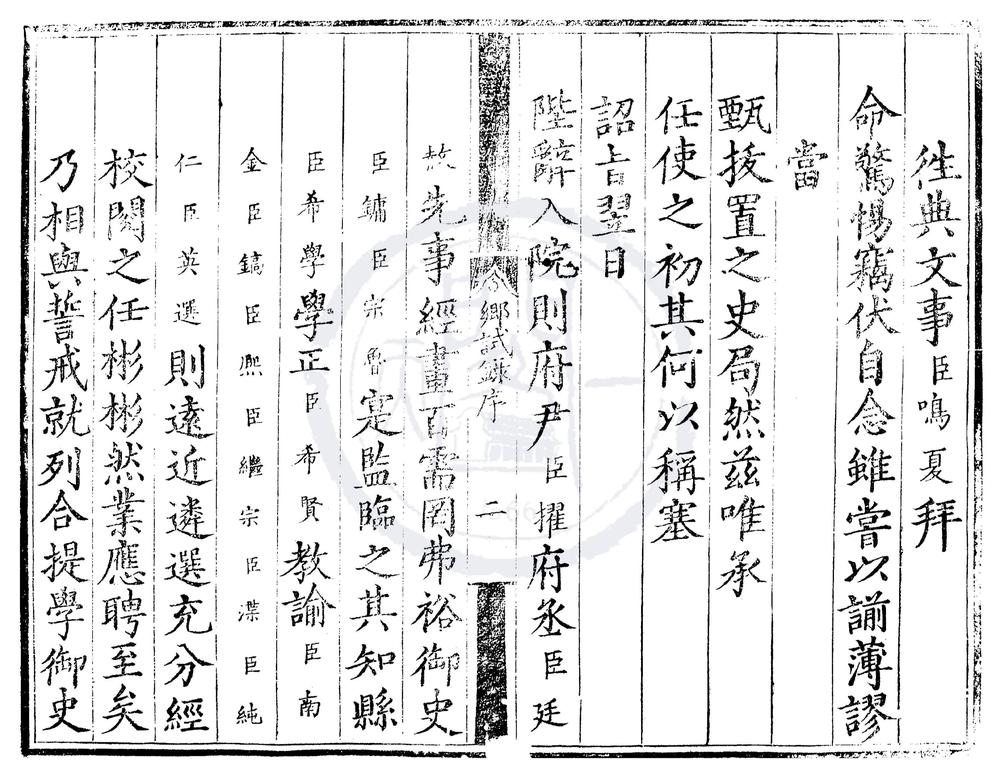 徃典文事臣鳴夏拜
命驚惕竊伏自念雖嘗以謭薄謬
當
甄拔置之史局然茲唯承
任使之初其何以稱塞
詔旨翌日
陛辭入院則府尹臣擢府丞臣廷
鄉試錄序 二
先事經畫百需罔弗裕御史
臣鏞臣宗魯寔監臨之其知縣
臣希學學正臣希賢教諭臣南
金臣鎬臣熈臣繼宗臣渫臣純
仁臣英選則遠近遴選充分經
校閱之任彬彬然業應聘至矣
乃相與誓戒就列合提學御史